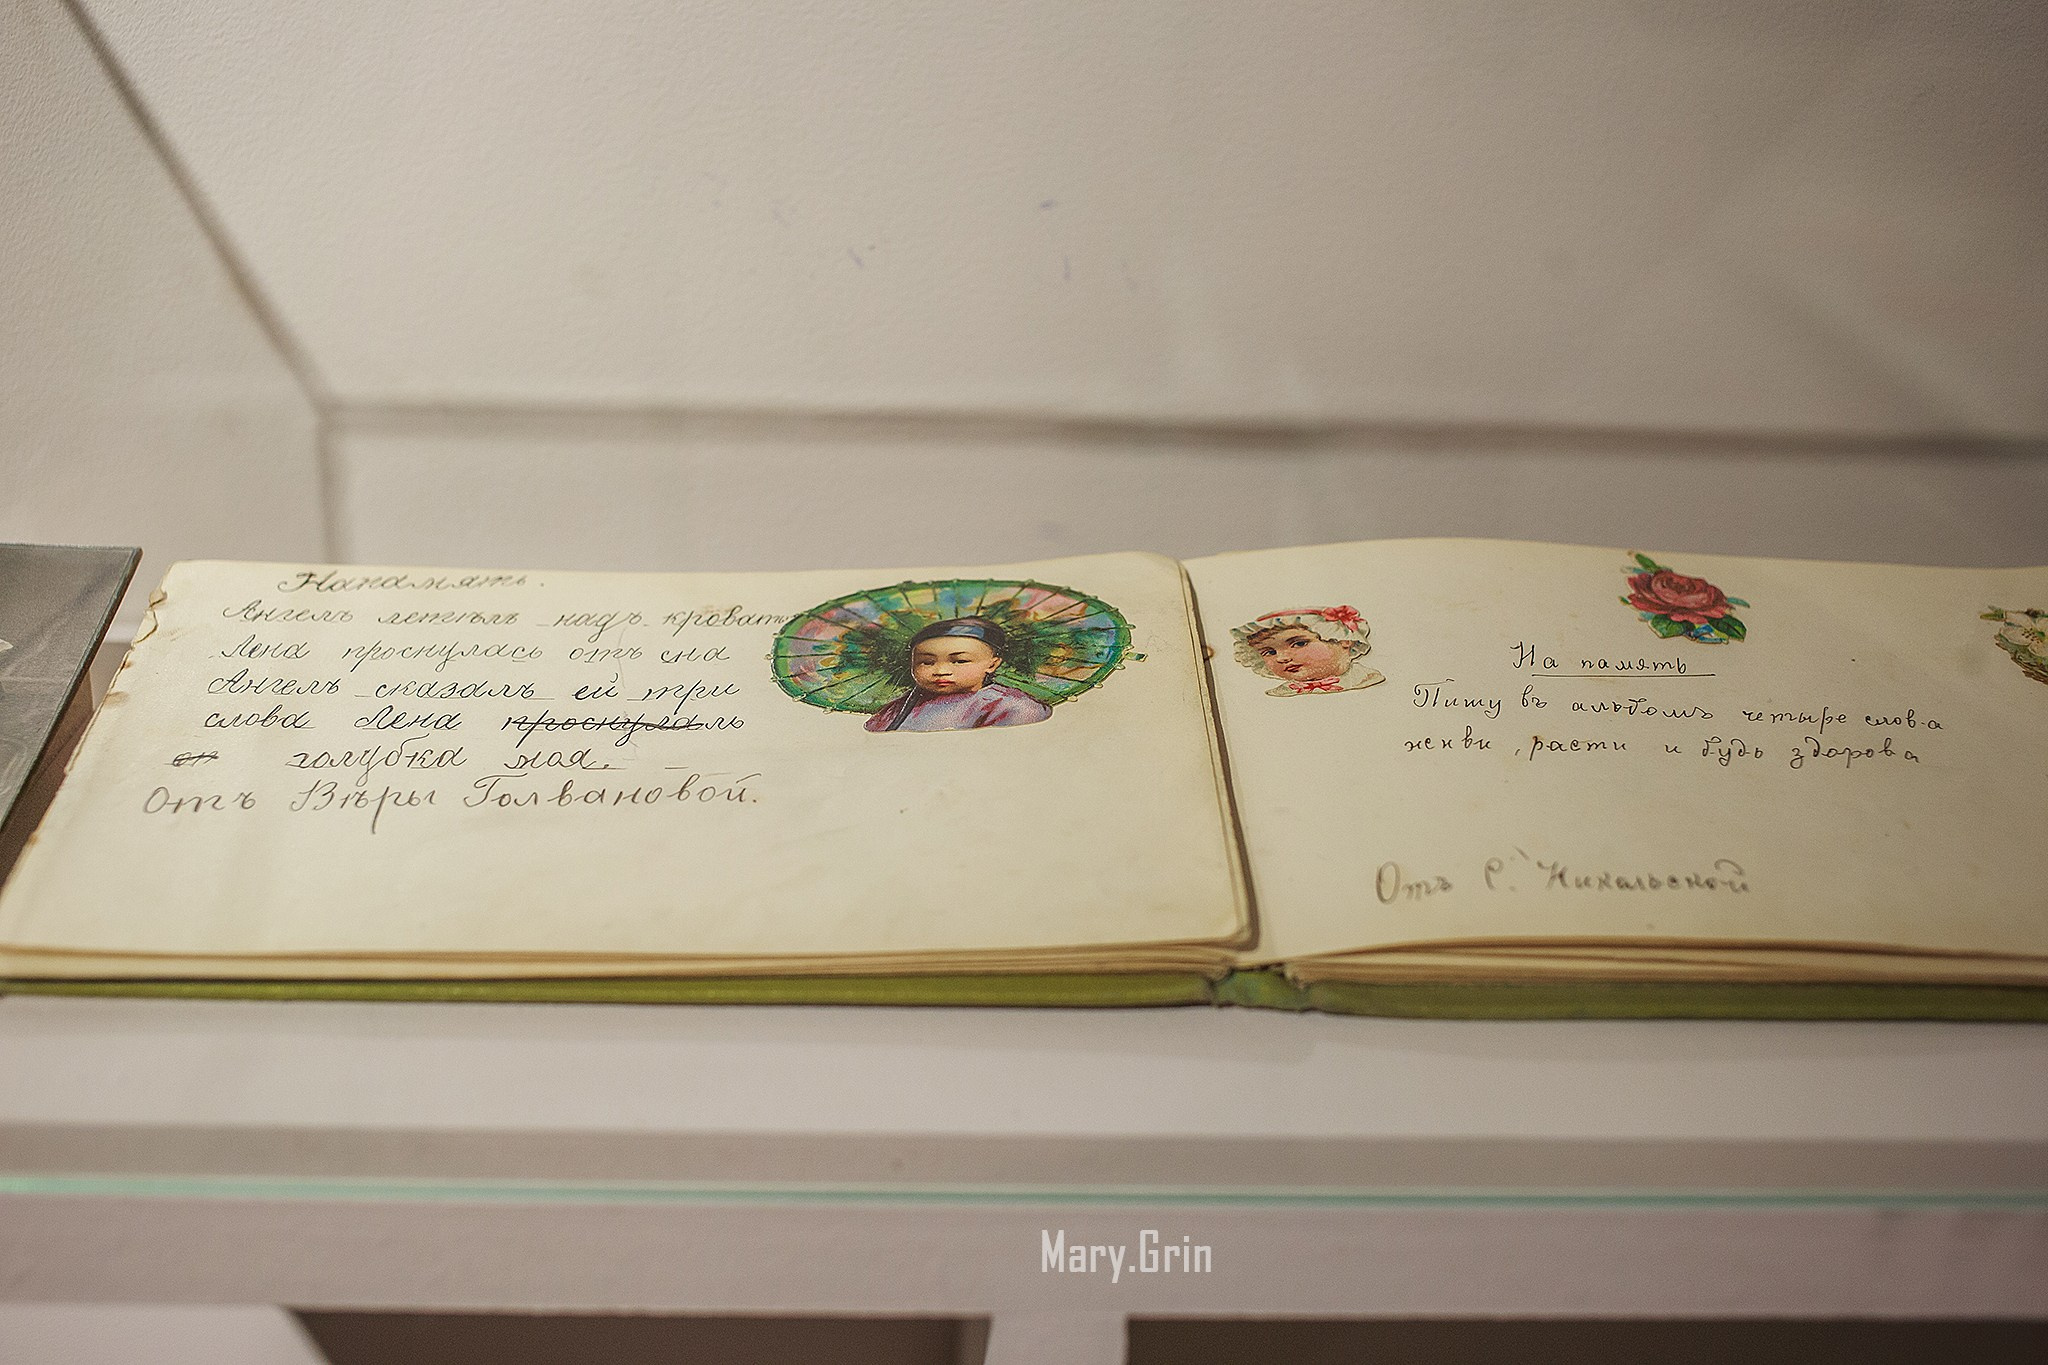 Напамять.
Ангелъ летѣлъ надъ кровать
Лена проснулась отъ сна
Ангелъ сказалъ ей три
слова Лена проснулалъ
он голубка моя.
Отъ Вѣры Голвановой.
На память
Пишу въ альбомъ четыре слова
живи, расти и будь здорова
Отъ С. Никольской
Mary.Grin